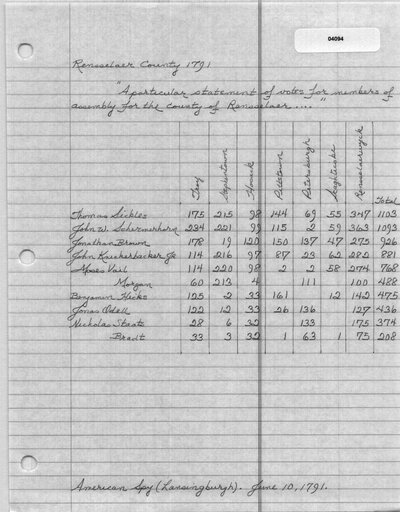 04094
Rensselaer County 1791
"A particular statement of votes for members of
assembly for the county of Rensselaer . . . . "
Troy Stephentown Hoosick Pittstown Petersburgh Scaghticoke Rensselaerwyck Total
Thomas Sickles 175 215 98 144 69 55 347 1103
John W. Schermerhorn 234 221 99 115 2 59 363 1093
Jonathan Brown 178 19 120 150 137 47 275 926
John Knickerbacker Jr 114 216 97 87 23 62 282 881
Moses Vail 114 220 98 2 2 58 274 768
Morgan 60 213 4 111 100 488
Benjamin Hicks 125 2 33 161 12 142 475
Jonas Odell 122 12 33 26 136 127 436
Nicholas Staats 28 6 32 133 175 374
Bradt 33 3 32 1 63 1 75 208
American Spy (Lansingburgh). June 10, 1791.